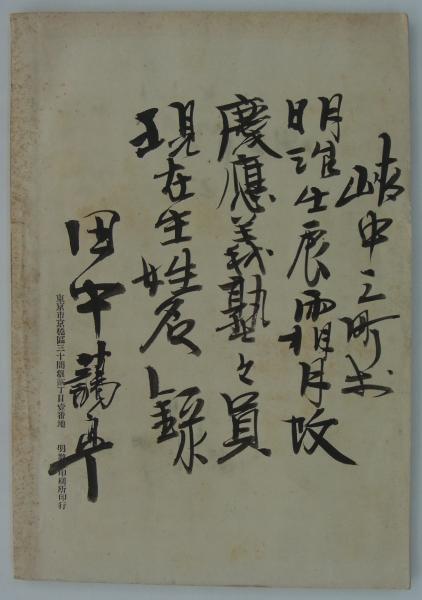 峡中
明 壬辰霜月改
慶應義塾々員
現在生姓名録
田中
東京市京橋區三十間堀 丁目壹番地 明 印刷所印行